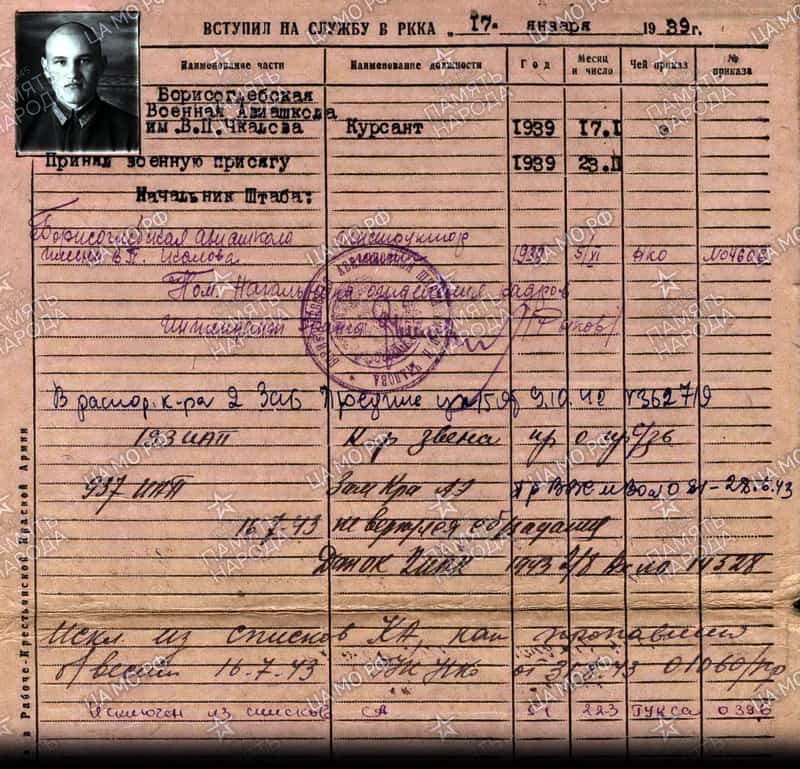 ВСТУПИЛ НА СЛУЖБУ В РККА „ 17." января 1939г.
Наименование части Наименование должности Год Месяц и число Чей приказ № приказа
Борисоглебская
Военная Авиашкола
им.В.П.Чкалова Курсант 1939 17.I
Принял военную присягу 1939 23.II
Начальник Штаба:
Борисоглебская Авиашкола Инструктор
имени В.П. Чкалова 1939 5/XI НКО №04608
Пом. Начальника отделения кадров
В распор. к-ра 2 Заб 9.10.42
193 ИАП К-р звена
937 ИАП Зам К-ра АЭ 28.6.43
16.7.43 не вернулся с б/задания
1943 2/8 14528
Искл. из списков КА, как пропавший
б/вести 16.7.43 ГУК НКО от 31.8.43 01060/пр
Исключен из списков СА 51 223 ГУКСА 0396
в Рабоче-Крестьянской Красной Армии
ЦАМО.РФ
ПАМЯТЬ НАРОДА